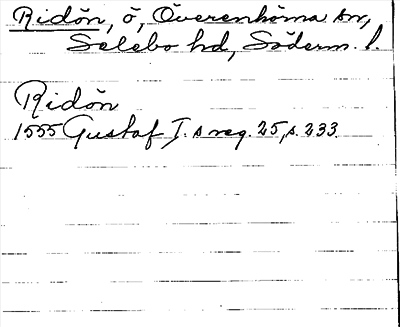 Ridön, ö, Överenhörna sn,
Selebo hd, Söderm. l.
Ridön
1555 Gustaf I:s reg. 25, s. 233.